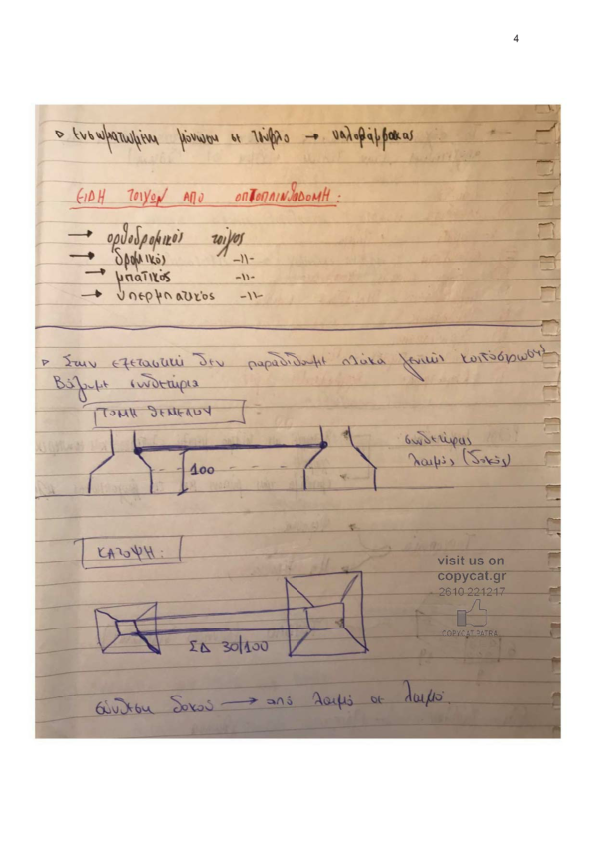 4
▷ Ενσωματωμένη μόνωση σε τούβλο → υαλοβάμβακας
ΕΙΔΗ ΤΟΙΧΩΝ ΑΠΟ ΟΠΤΟΠΛΙΝΘΟΔΟΜΗ:
→ ορθοδρομικός τοίχος
→ δρομικός -11-
→ μπατικός -11-
→ υπερμπατικός -11-
▷ Στην εξεταστική δεν παραδίδουμε πλάκα γενικής κοιτόστρωσης
Βάζουμε συνδετήρια
ΤΟΜΗ ΘΕΜΕΛΙΟΥ
συνδετήρας
λαιμός (δοκός)
100
ΚΑΤΟΨΗ:
visit us on
copycat.gr
2610 221217
COPYCAT PATRA
ΣΔ 30/100
σύνδεση δοκού → από λαιμό σε λαιμό.